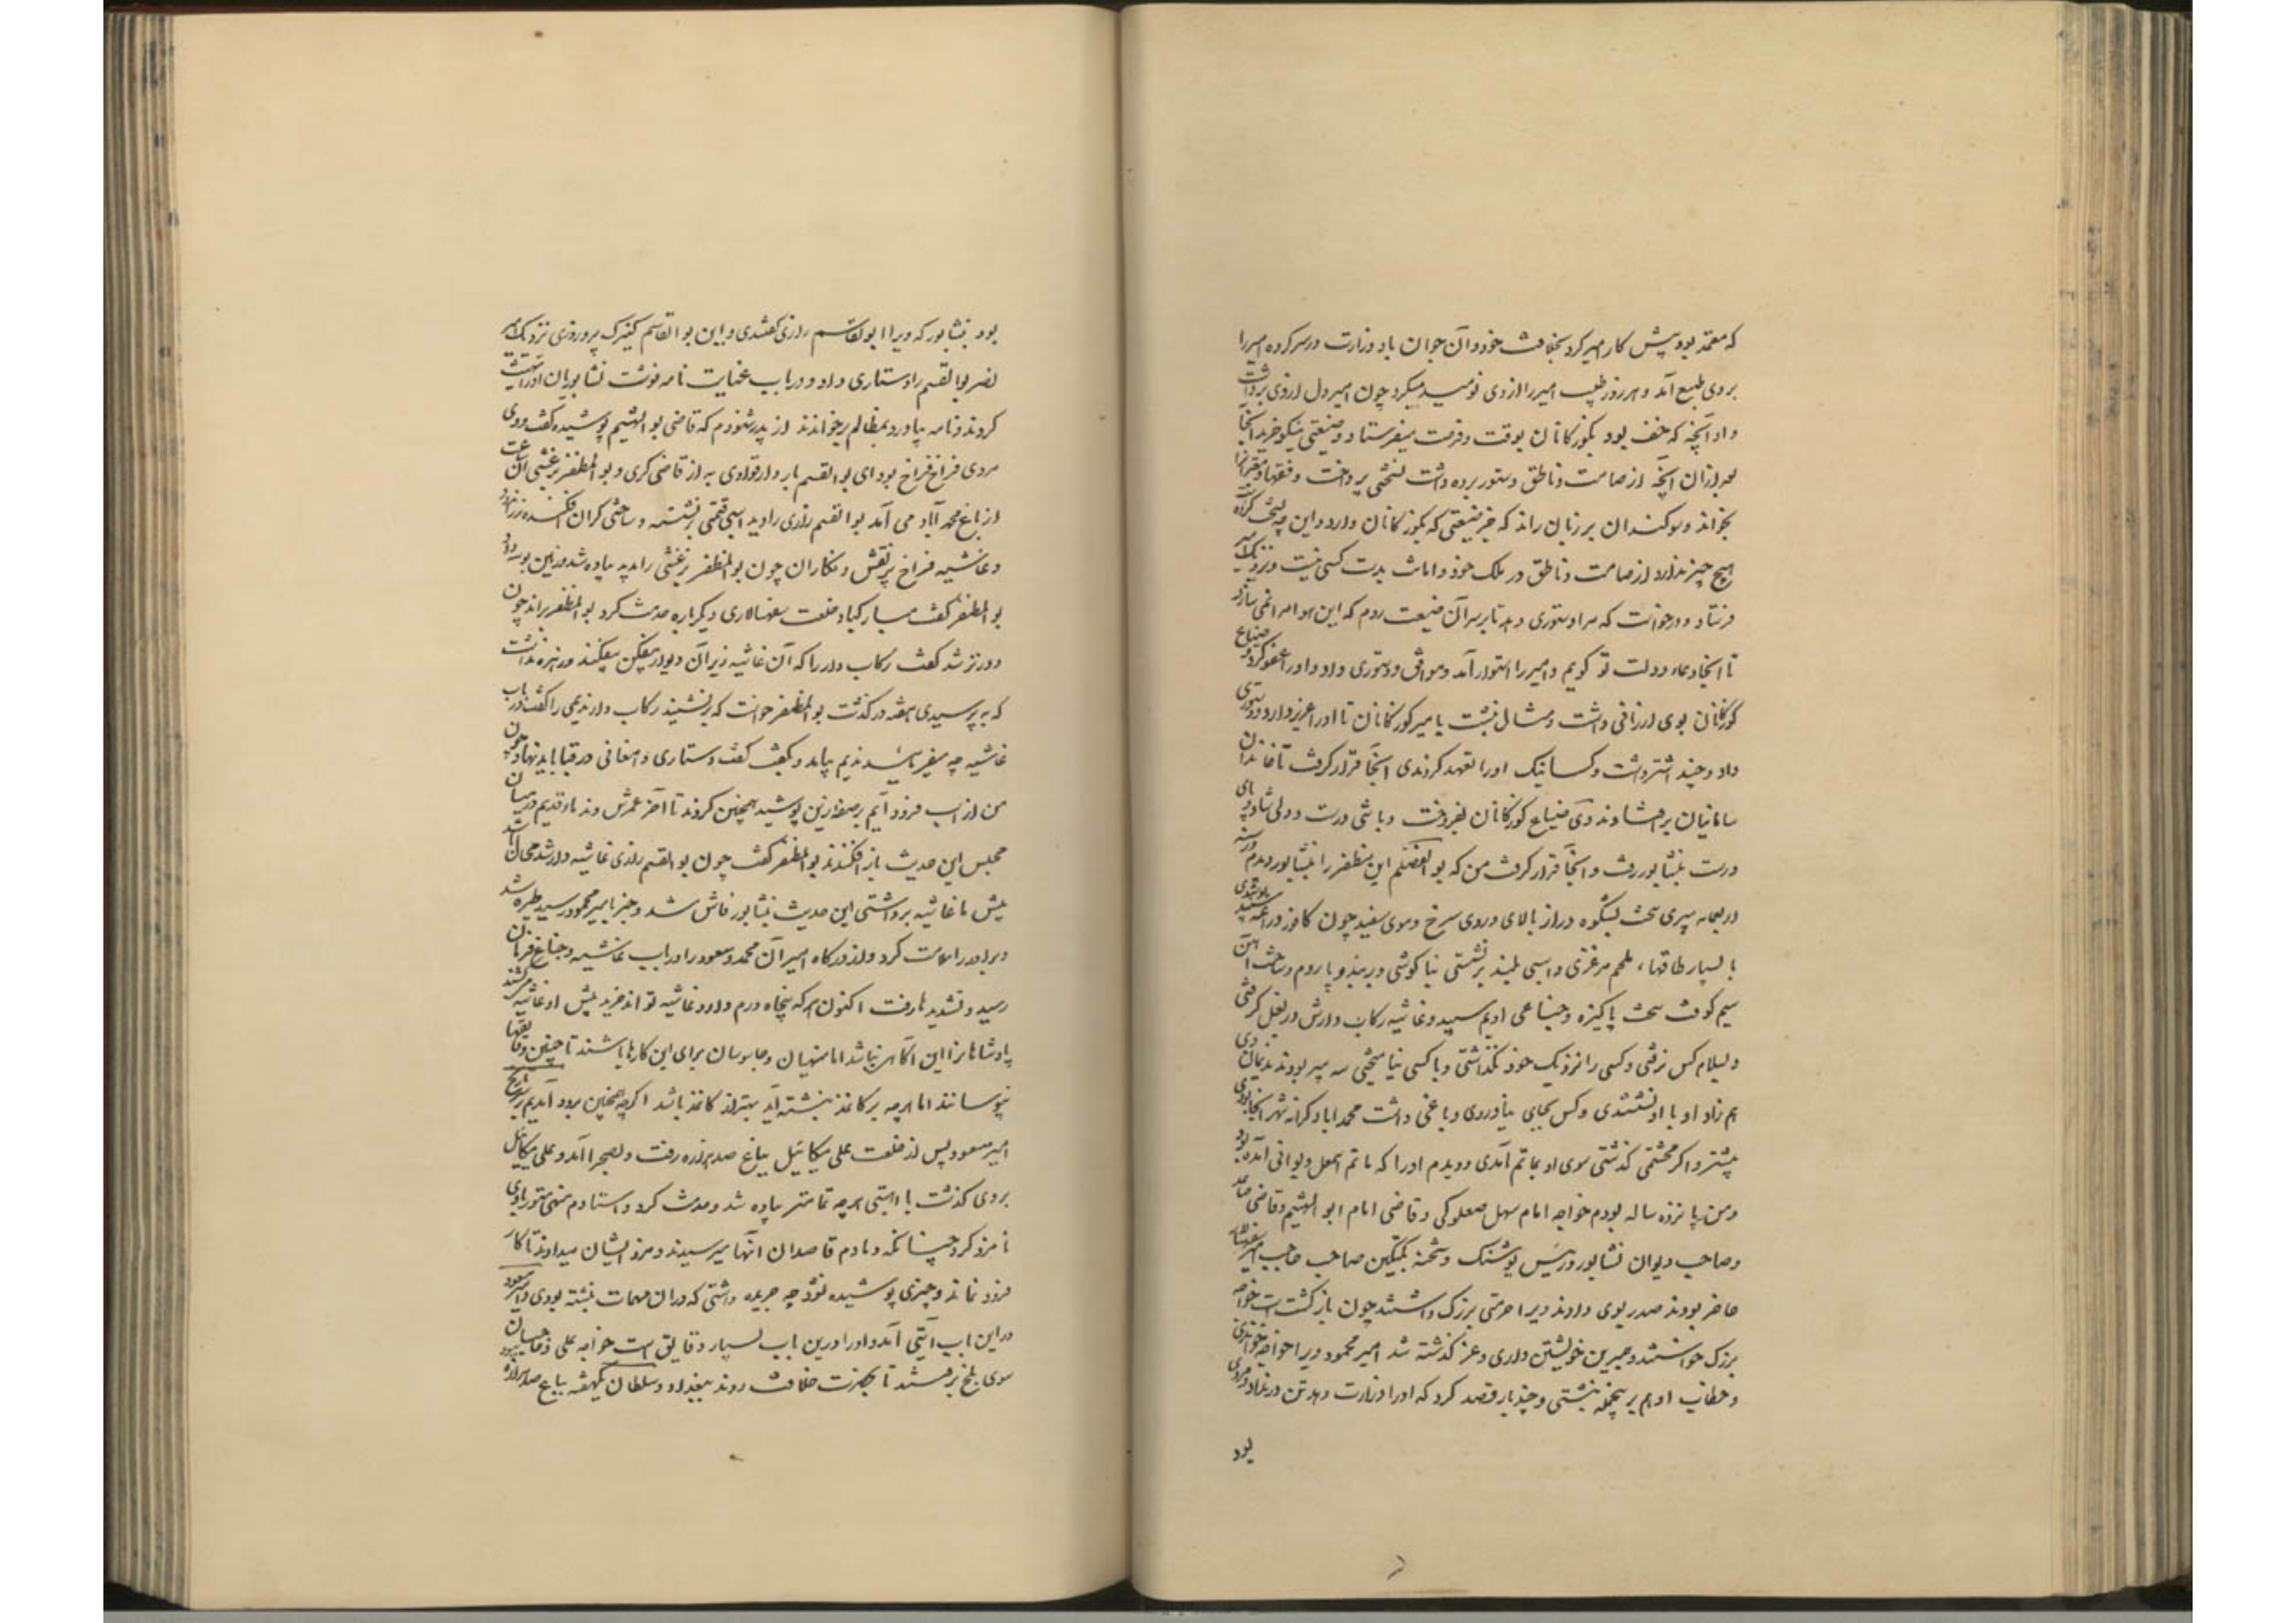 که معتمد بود پیش کار امیر کرد بخلافت خود و آن جوان باد وزارت در سر کرده امیر را
بروی طبع آمد و هر روز طبیب امیر را از وی نومید میکرد چون امیر دل از وی برداشت
و او آنچه که خف بود بکوزکانان بوقت و فرصت میفرستاد و ضیعتی نیکو خرید آنجا
بعد ازان آنچه از صامت و ناطق و ستور برده داشت نسختی پرداخت و فقها و معتبران را
بخواند و سوکندان بر زبان راند که جز ضیعتی که بکوزکانان دارد و این چه نسخت کرد
هیچ چیز ندارد از صامت و ناطق در ملک خود و امانت بدست کسی نیست و نزدیک امیر
فرستاد و درخواست که مرا دستوری دهد تا بر سر آن ضیعت روم که این هوا مرا نمی سازد
تا آنجا دعاء دولت تو کویم و امیر را استوار آمد و موافق و دستوری داد و او را عفو کرد و ضیاع
کوزکانان بوی ارزانی داشت و مثال نبشت بامیر کوزکانان تا او را عزیز دارد و دستوری
داد و چند اشتر داشت و کسانیک او را تعهد کردندی آنجا قرار کرفت تا خاندان
سامانیان برافتاد وی ضیاع کوزکانان بفروخت و با تنی درست و دلی شاد و پای
درست بنشابور رفت و آنجا قرار کرفت من که بوالفضلم این بومظفر را بنشابور دیدم در سنه
اربعمایه پیری سخت بشکوه دراز بالای و روی سرخ و موی سفید چون کافور دراعه سپید پوشیدی
با بسیار طاقها، ملحم مرغزی و اسبی بلند برنشستی بناکوشی و بربند و پاردم و ساخت آهن
سیم کوفت سخت پاکیزه و جناغی ادیم سپید و غاشیه رکاب دارش در بغل کرفتی
و بسلام کس نرفتی و کسی را نزدیک خود نکذاشتی و با کسی نیامیختی سه پیر بودند ندیمان وی
هم زاد او با او نشستندی و کس بجای نیاوردی و باغی داشت محمد اباد کرانه شهر آنجا بودی
بیشتر و اکر محتشمی کذشتی سوی او بماتم آمدی و دیدم او را که ماتم اسمعیل دیوانی آمده بود
و من پانزده ساله بودم خواجه امام سهل صعلوکی و قاضی امام ابو الهثیم و قاضی صاعد
و صاحب دیوان نشابور و رئیس پوشنک و شحنه بکتکین صاحب حاجب امیر سفهسالار
حاضر بودند صدر بوی دادند ویرا حرمتی بزرک داشتند چون باز کشت اسب خواجه
بزرک خواستند و همبرین خویشتن داری و عز کذشته شد امیر محمود ویرا خواجه خواندی
و خطاب او هم برینجمله نبشتی و چند بار قصد کرد که او را وزارت دهد تن در نداد و مردی
بود
بود بنشابور که ویرا ابوالقاسم رازی کفتندی و این بوالقاسم کنیزک پروردی نزدیک امیر
نصر بوالقسم را دستاری داد و در باب عنایت نامه نوشت نشابوریان او را تهنیت
کردند و نامه بیاورد بمظالم برخواندند از پدر شنودم که قاضی بو الهثیم پوشیده کفت و وی
مردی فراخ فراخ بود ای بوالقسم یاد دار قوادی به از قاضی کری و بو المظفر برغشی آن ساعت
از باغ محمد آباد می آمد بوالقسم رازی را دید اسبی قیمتی برنشسته و ساختی کران افکنده زراندود
و غاشیه فراخ پرنقش و نکاران چون بو المظفر برغشی را بدید پیاده شد و زمین بوسه داد
بو المظفر کفت مبارکباد خلعت سفهسالاری دیکرباره خدمت کرد بو المظفر براند چون
دورتر شد کفت رکاب دار را که آن غاشیه زیر آن دیوار بیفکن بیفکند و زهره نداشت
که بپرسیدی هفته در کذشت بو المظفر خواست که برنشیند رکاب دار ندیمی را کفت در باب
غاشیه چه میفرماید ندیم بیامد و بکفت کفت دستاری دامغانی در قبا باید نهاد چون
من از اسب فرود آیم بر صفه زین پوشید همچنین کردند تا آخر عمرش و ندماء قدیم در میان
مجلس این حدیث باز افکندند بو المظفر کفت چون بو القسم رازی غاشیه دار شد محال باشد
پیش ما غاشیه برداشتی این حدیث بنشابور فاش شد و خبر بامیر محمود رسید طیره شد
و برادر را ملامت کرد و از درکاه امیران محمد و مسعود را در باب غاشیه و جناغ فرمان
رسید و تشدیدها رفت اکنون هر که پنجاه درم دارد و غاشیه تواند خرید پیش او غاشیه میکشند
پادشاهانرا این آکاهی نباشد اما منهیان و جاسوسان برای این کارها باشند تا چنین دقیقها
نپوسانند اما هر چه بر کاغذ نبشته آید بهتر از کاغذ باشد اکرچه همچنین برود آمدیم بسر تاریخ
امیر مسعود پس از خلعت علی میکائیل بباغ صد هزاره رفت و بصحرا آمد و علی میکائیل
بروی کذشت با ابهتی هر چه تمامتر پیاده شد و خدمت کرد و استادم منهی مستور با وی
نامزد کرد چنانکه دمادم قاصدان آنها میرسیدند و مزد ایشان میدادند تا کار
فرو نماند و چیزی پوشیده نشود چه جریده داشتی که دران مهمات نبشته بودی و امیر مسعود
در این باب آیتی آمد و او را درین باب بسیار دقایق است خواجه علی و حاجیان
سوی بلخ برفتند تا بحضرت خلافت روند ببغداد و سلطان یکهفته بباغ صد هزاره ببود